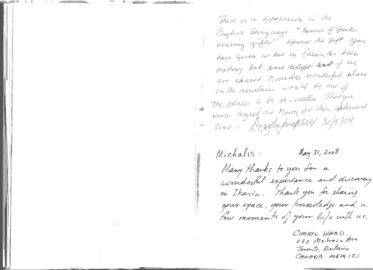 There is a expression in the
English language "Beware of Greeks
bearing gifts" However the gift you
have given us here in Ikaria has been
nothing but pure delight and if we
are wonderful place
on the mountain would be one of
the places to be re-visited
time. 30/5/08
Michalis: May 31, 2008.
Many thanks to you for a
wonderful experience and discovery
in Ikaria. Thank you for sharing
your space, your knowledge and a
few moments of your life with us.
Ward,
282 Melrose Ave
Toronto, Ontario
CANADA M5M 1Z1